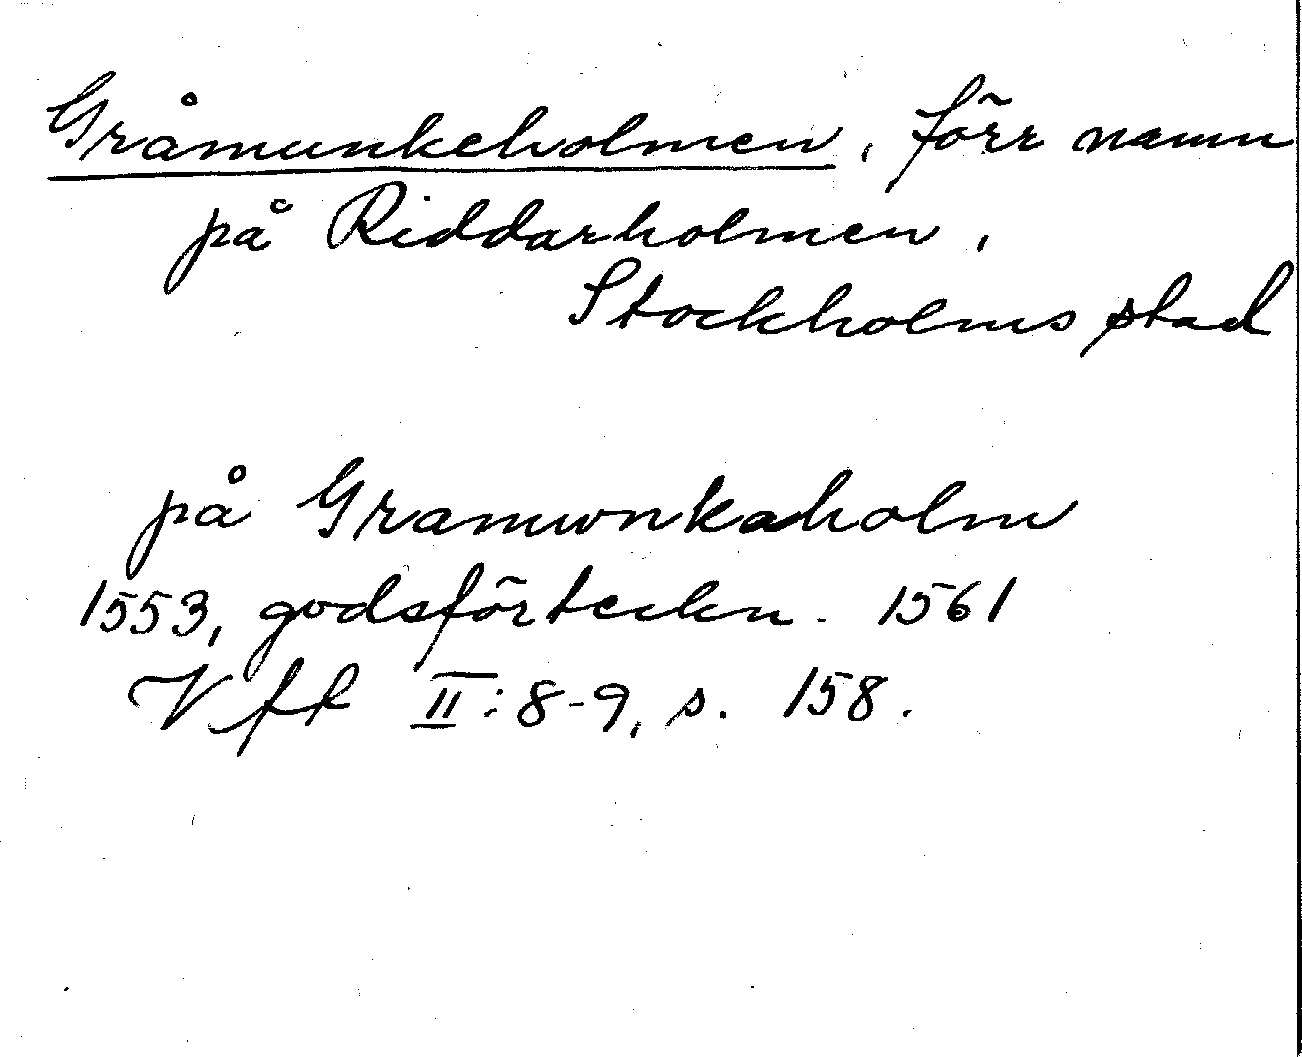 Gråmunkeholmen, förr namn
på Riddarholmen,
Stockholms stad
på Gramwnkaholm
1553, godsförteckn. 1561
Vff II:8-9, s. 158.